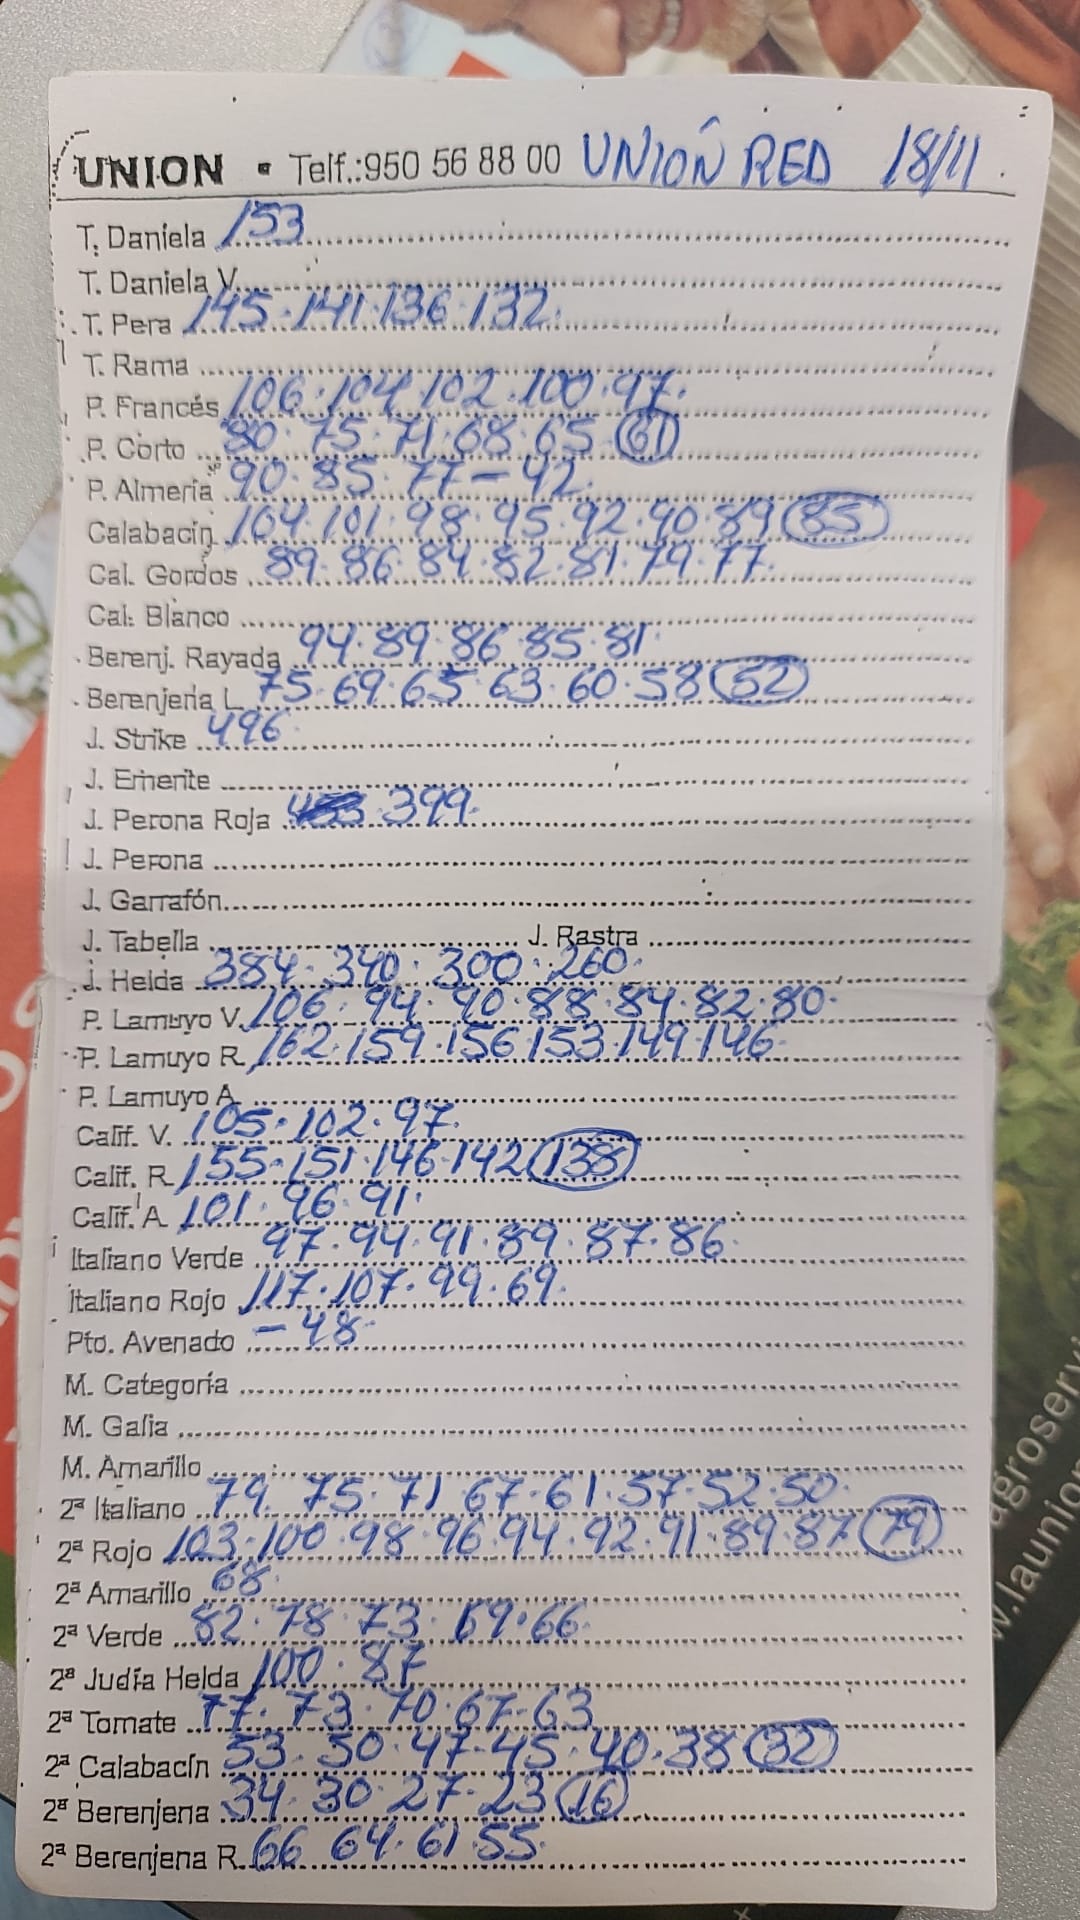 UNION • Telf.:950 56 88 00 UNIOÑ RED 18/11.
T. Daniela 153
T. Daniela V.
T. Pera 145·141·136·132.
T. Rama
P. Francés 106·104·102·100·97.
P. Corto 80·75·71·68·65·(61)
P. Almería 90·85·77-42.
Calabacín 104·101·98·95·92·90·89(85)
Cal. Gordos 89·86·84·82·81·79·77.
Cal. Blanco
Berenj. Rayada 94·89·86·85·81.
Berenjena L. 75·69·65·63·60·58(52)
J. Strike 496.
J. Emerite
J. Perona Roja 399.
J. Perona
J. Garrafón
J. Tabella J. Rastra
J. Helda 384·340·300·260.
P. Lamuyo V. 106·94·90·88·84·82·80.
P. Lamuyo R. 162·159·156·153·149·146.
P. Lamuyo A.
Calif. V. 105·102·97.
Calif. R. 155·151·146·142(138)
Calif. A. 101·96·91.
Italiano Verde 97·94·91·89·87·86.
Italiano Rojo 117·107·99·69.
Pto. Avenado -48.
M. Categoría
M. Galia
M. Amarillo
2ª Italiano 79·75·71·67·61·57·52·50.
2ª Rojo 103·100·98·96·94·92·91·89·87(79)
2ª Amarillo 68.
2ª Verde 82·78·73·69·66.
2ª Judía Helda 100·87
2ª Tomate 77·73·70·67·63
2ª Calabacín 53·50·47·45·40·38(32)
2ª Berenjena 34·30·27·23(16)
2ª Berenjena R. 66·64·61·55.
agroservi
w.launion